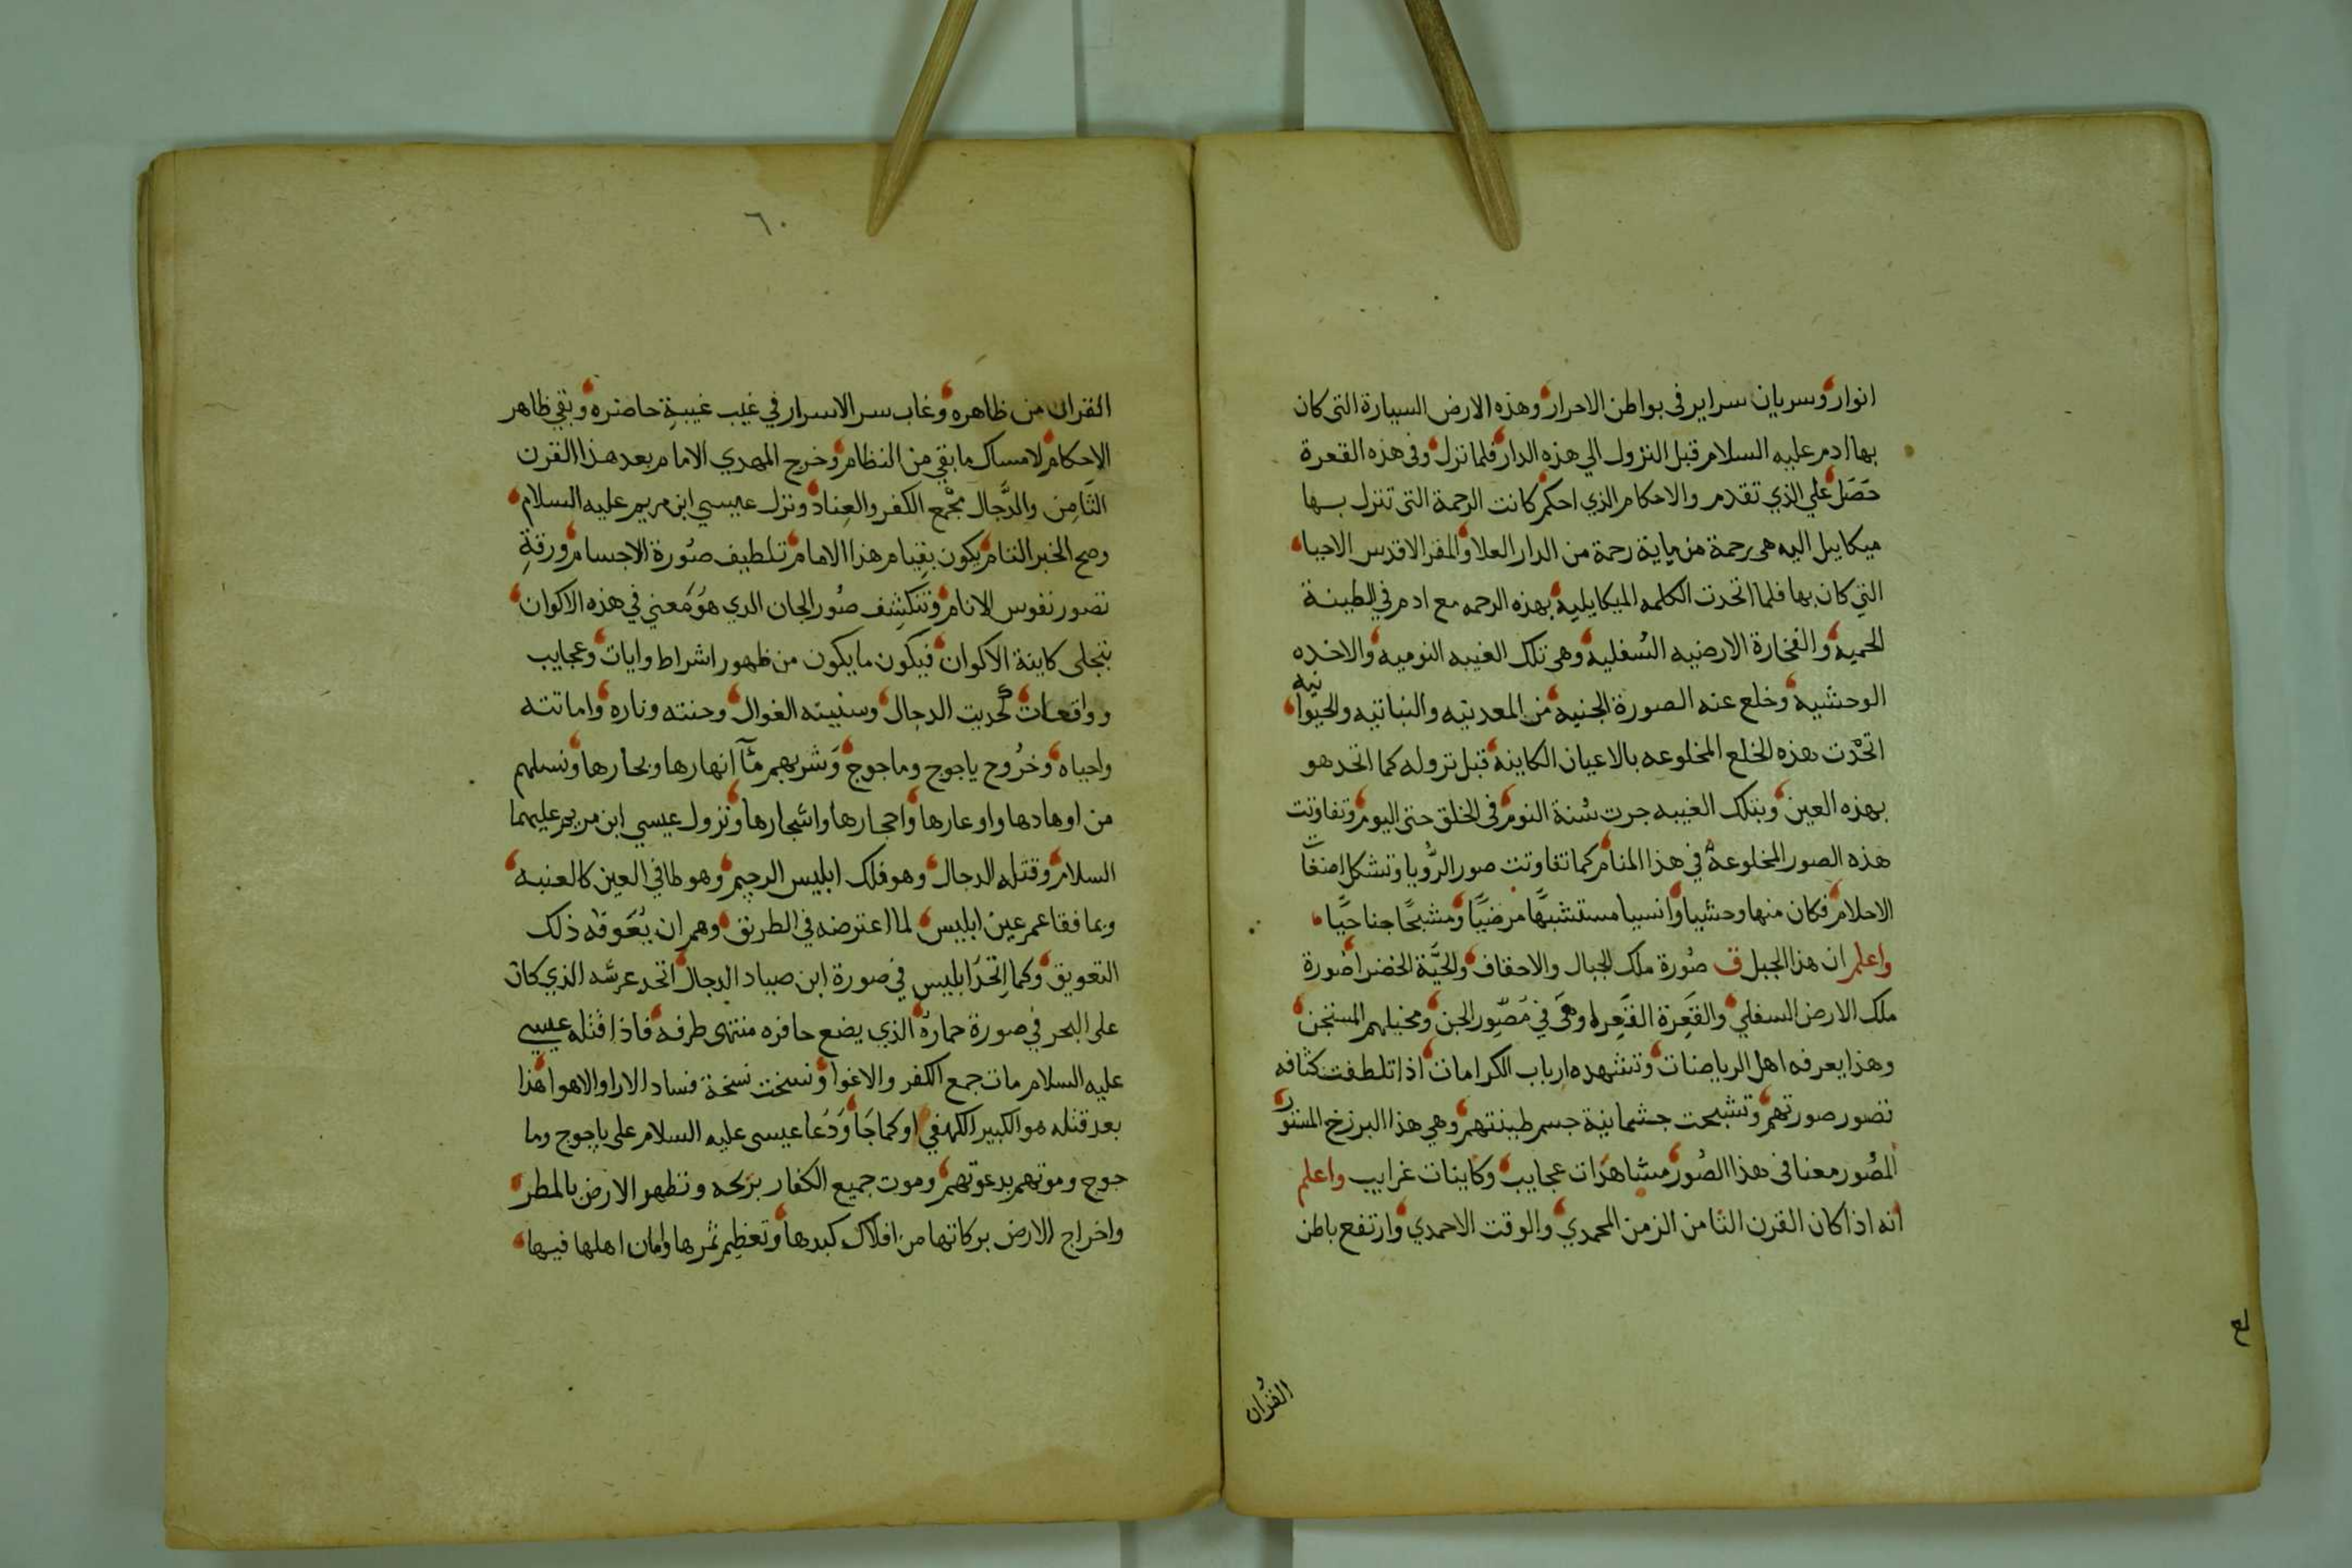 انوار وسريان سراير فى بواطن الاحرار وهذه الارض السيارة التى كان
بها ادم عليه السلام قبل النزول الي هذه الدار فلما نزل وفى هذه القعرة
حَصَل علي الذي تقدم والاحكام الذي احكم كانت الرحمة التى تنزل بها
ميكاييل اليه هى رحمة من ماية رحمة من الدار العلا والمقر الاقدس الاحيا
التي كان بها فلما اتحدت الكلمه الميكايليه بهذه الرحمه مع ادم في الطينة
الحميه والفخارة الارضيه السُفليه وهى تلك الغيبه النوميه والاخده
الوحشيه وخلع عنه الصورة الجنيه من المعدنيه والنباتيه والحيوانيه
اتحَدت هذه الخلع المخلوعه بالاعيان الكاينة قبل نزوله كما اتحد هو
بهذه العين وبتلك الغيبه جرت سُنة النوم فى الخلق حتى اليوم وتفاوتت
هذه الصور المخلوعة في هذا المنام كما تفاوتت صور الرُّويا وتشكل اضغاث
الاحلام فكان منها وحشيا وانسيا مستشبهًا مرضيًا ومشبحًا جناحيًّا
واعلم ان هذا الجبل ق صُورة ملك الجبال والاحقاف والحيَّة الخضرا صُورة
ملك الارض السفلي والقَعِرة القَعِرا وهىَ في مُصَوِر الجن ومخيلهم المستجن
وهذا يعرفه اهل الرياضات وتشهده ارباب الكرامات اذا تلطفت كثافه
تصور صورتهم وتشبحت جشمانية جسم طينتهم وهي هذا البرزخ المستور
المصُور معنا فى هذا الصُور مشاهدَات عجايب وكاينات غرايب واعلم
انه اذا كان القرن الثامن الزمن المحمدي والوقت الاحمدي وارتفع باطن
القُران
٦٠
القران من ظاهره وغاب سر الاسرار في غيب غيبةِ حاضره وبقي ظاهر
الاحكام لامساك ما بقي من النظام وخرج المهدي الامام بعد هذا القرن
الثَامِن والدَّجال مجْمع الكفر والعِناد ونزل عيسي ابن مريم عليه السلام
وصح الخبر التام يكون بقيام هذا الامام تلطيف صُورة الاجسام ورقةِ
تصور نفوس الانام وتنكشِف صُور الجان الدي هوَ مَعني في هذه الاكوان
بتجلى كاينة الاكوان فيكون ما يكون من ظهور اشراط وايات وعجايب
وواقعات كحديث الدجال وسنيينه الغوال وجنته وناره واماتته
واحياه وخرُوج ياجوج وماجوج وَشربهم مآء انهارها وبحارها ونسلهم
من اوهادها واوعارها واحجارها واشجارها ونزول عيسي ابن مريم عليهما
السلام وقتله الدجال وهو فلك ابليس الرجيم وهو طافي العين كالعنبه
وبما فقا عمر عين ابليس لما اعترضه في الطريق وهم ان يُعَوقه ذلك
التعويق وكما اتحدَ ابليس في صورة ابن صياد الدجال اتحد عرشه الذي كان
على البحر في صورة حماره الذي يضع حافره منتهى طرفه فاذا قَتله عيسي
عليه السلام مات جمع الكفر والاغوا ونسخت نسخة فساد الارا والاهوا هذا
بعد قتله هو الكبير الكهفي او كما جَا وَدَعا عيسى عليه السلام على ياجوج وما
جوج وموتهم بدعوتهم وموت جميع الكفار بريحه وتطهر الارض بالمطر
واخراج الارض بركاتها من افلاك كبدها وتعظِيم ثمرها وامان اهلها فيها